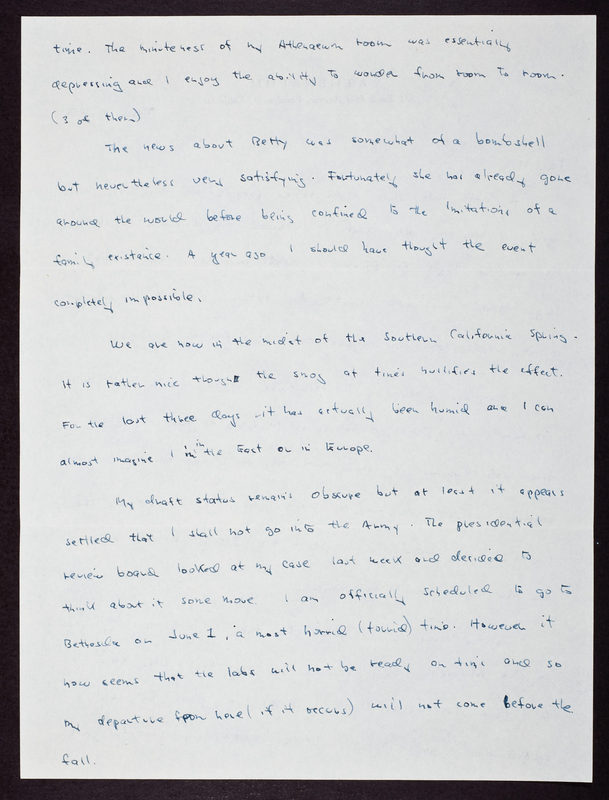 time. The minuteness of my Athenaeum room was essentially
depressing and I enjoy the ability to wonder from room to room.
(3 of them)
The news about Betty was somewhat of a bombshell
but nevertheless very satisfying. Fortunately she has already gone
around the world before being confined to the limitations of a
family existance. A year ago I should have thought the event
completely impossible.
We are now in the midst of the Southern California Spring.
It is rather nice though the smog at times nullifies the effect.
For the last three days it has actually been humid and I can
almost imagine I in in the East or in Europe.
My draft status remains obscure but at least it appears
settled that I shall not go into the Army. The presidential
review board looked at my case last week and decided to
think about it some more. I am officially scheduled to go to
Bethesda on June 1, a most horrid (torrid) time. However it
now seems that the labs will not be ready on time and so
my departure from here (if it occurs) will not come before the
fall.